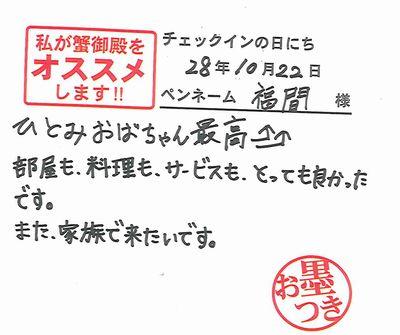 私が蟹御殿を
オススメ
します!!
チェックインの日にち
28年10月22日
ペンネーム 福間 様
ひとみおばちゃん最高⤴⤴
部屋も、料理も、サービスも、とっても良かった
です。
また、家族で来たいです。
お墨つき